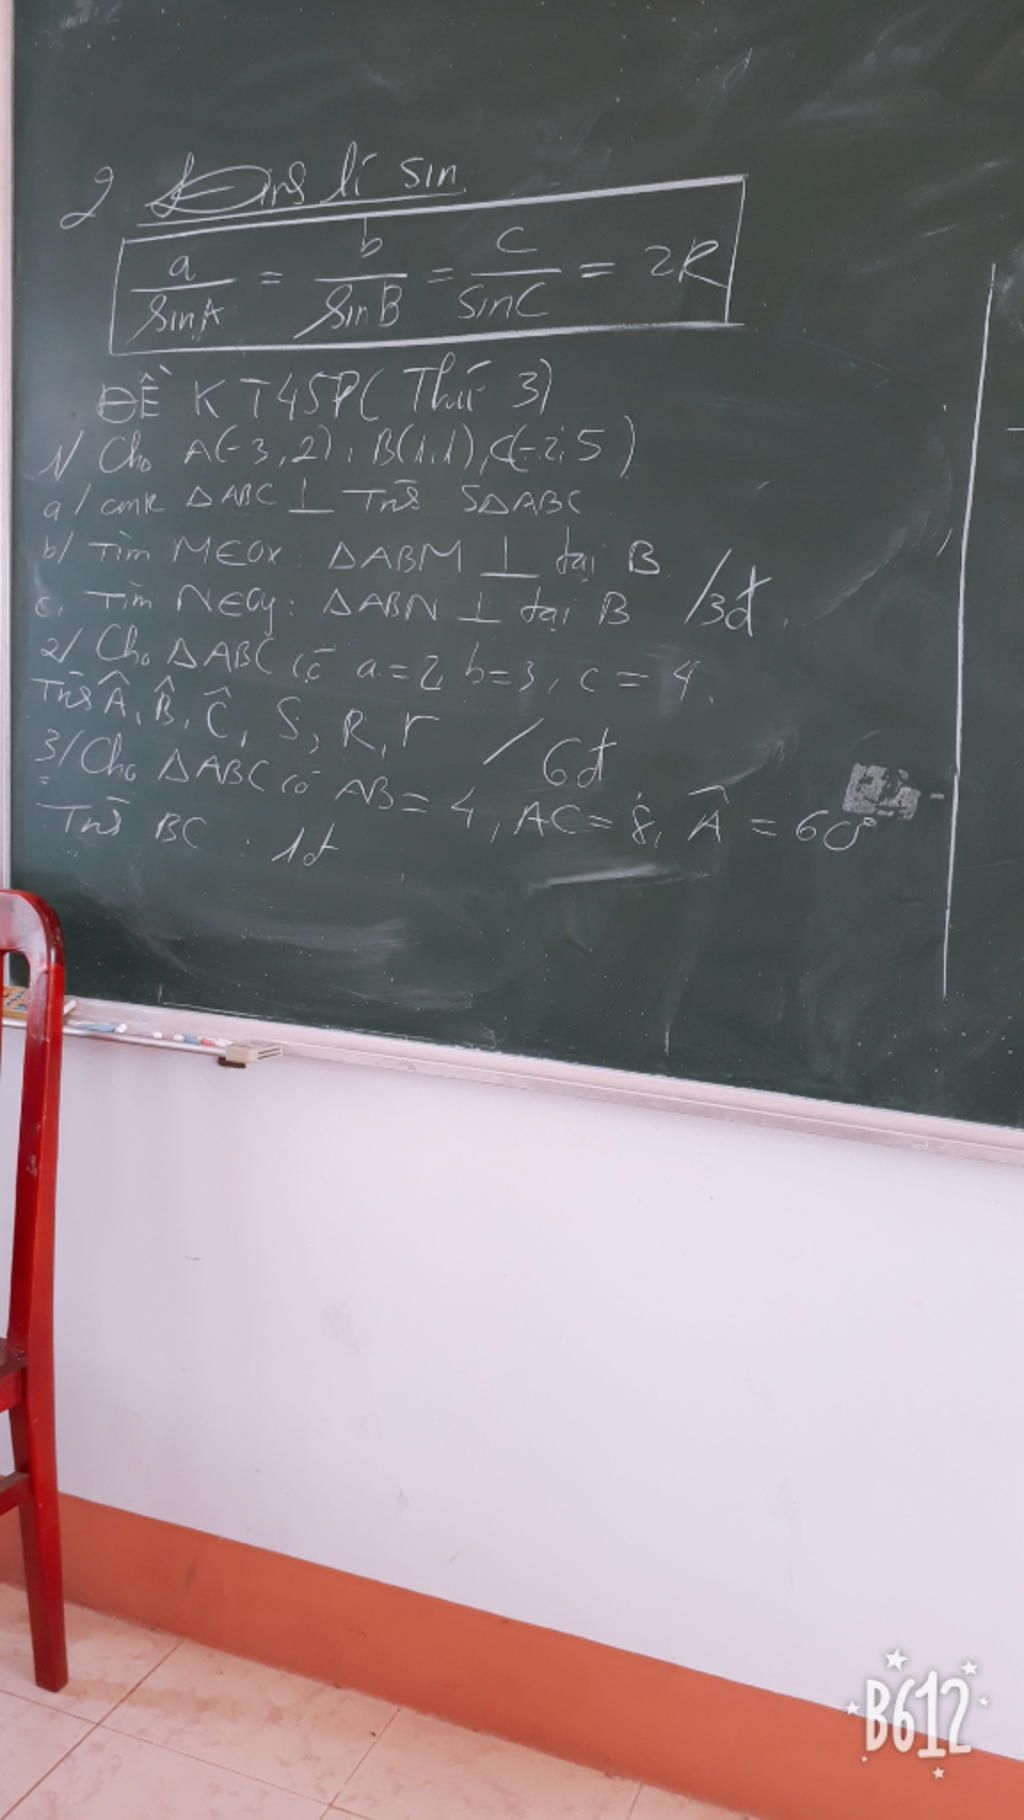 2 Định lí sin
a/sinA = b/sinB = c/sinC = 2R
ĐỀ KT45P (Thứ 3)
1/ Cho A(-3,2), B(1,1), C(-2,5)
a/ cmr ΔABC ⊥ Tính SΔABC
b/ Tìm M∈Ox: ΔABM ⊥ tại B.
c, Tìm N∈Oy: ΔABN ⊥ tại B /3đ.
2/ Cho ΔABC có a=2, b=3, c=4.
Tính Â, B̂, Ĉ, S, R, r /6đ
3/ Cho ΔABC có AB=4, AC=8, Â=60°
Tính BC. 1đ
B612